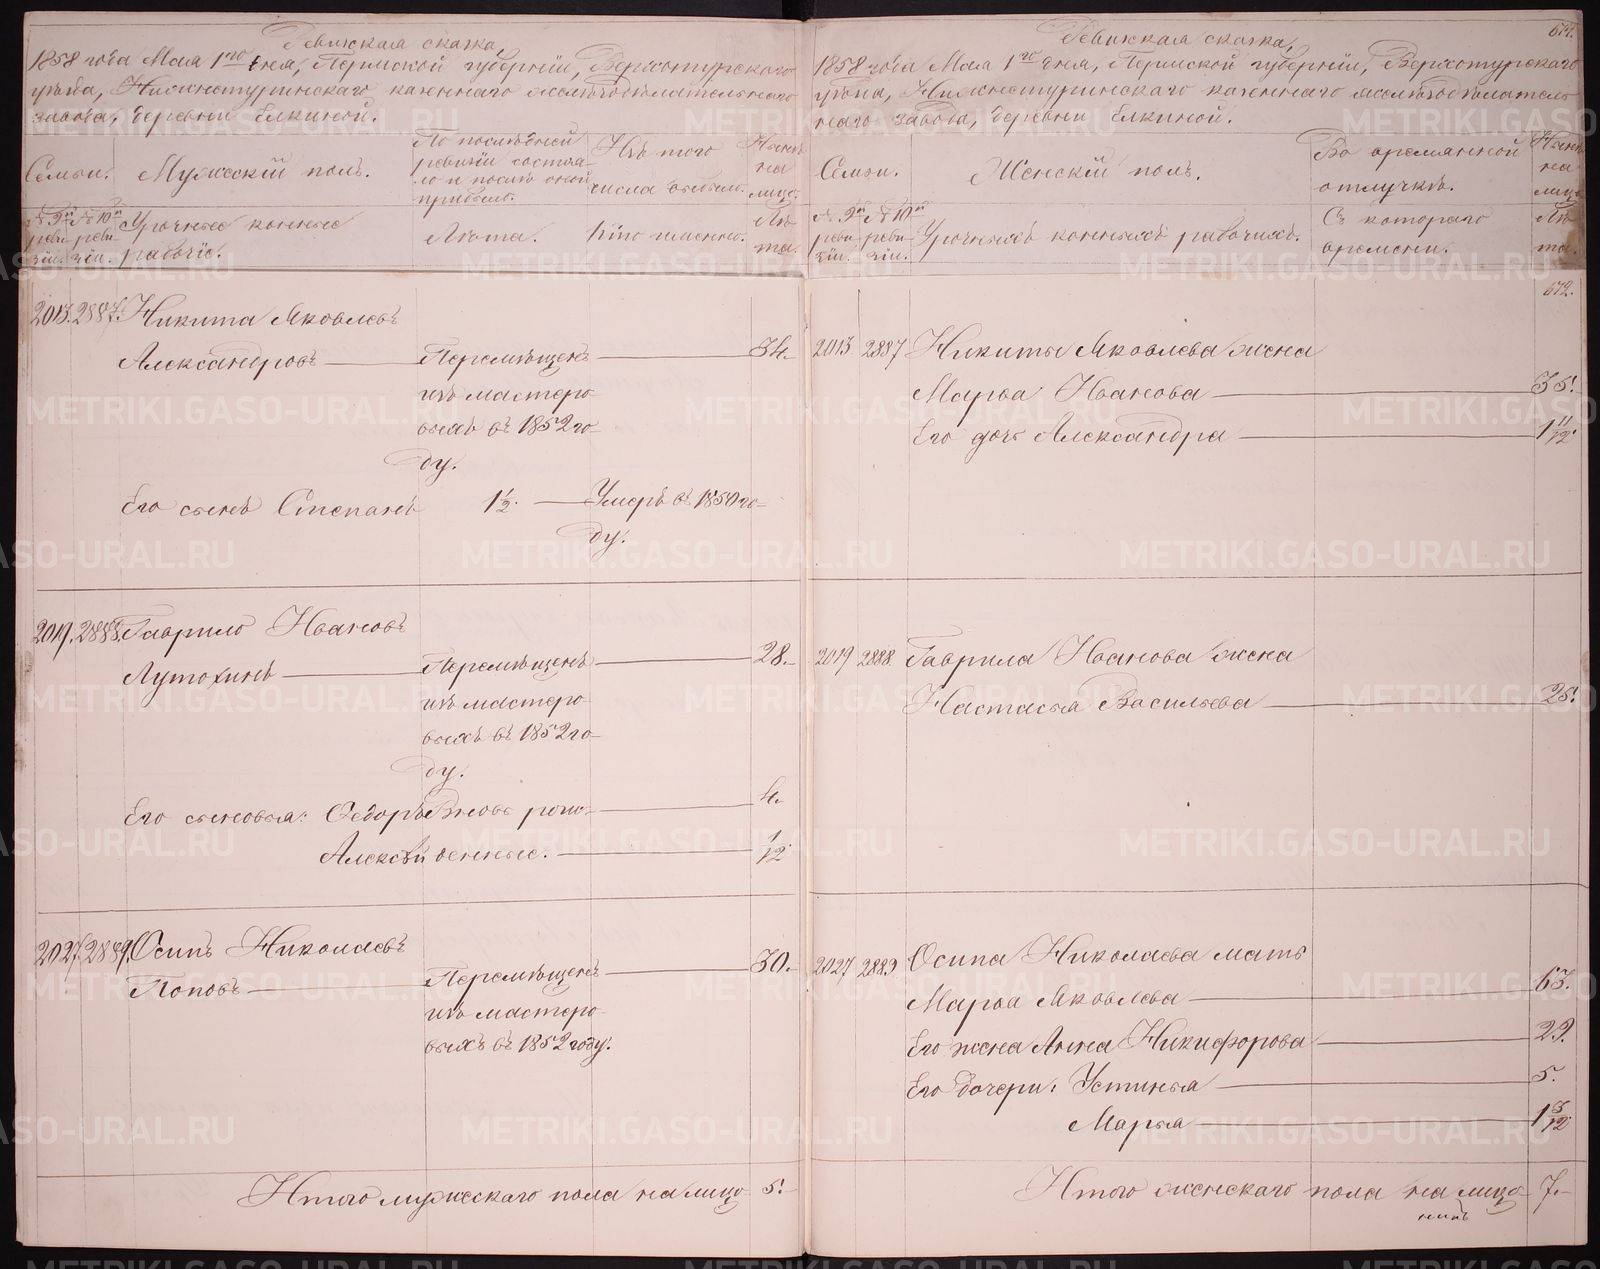 Ревижская сказка,
1858 года Мая 1го дня, Пермской губерніи, Верхотурскаго
уѣзда, Нижнетуринскаго казеннаго желѣзодѣлательнаго
завода, деревни Елкиной.
Семьи.
Мужескій полъ.
По послѣдней ревизіи состояло и послѣ оной прибыло.
Изъ того числа выбыло.
Нынѣ на лицо.
№ 9й ревизіи.
№ 10й ревизіи.
Урочные конные рабочіе.
Лѣта.
Кто именно.
Лѣта.
2013. 2887. Никита Яковлевъ
Александровъ — Перемѣщенъ — 34.
изъ мастеро-
выхъ въ 1852 го-
ду.
Его сынъ Степанъ 1½. — Умеръ въ 1850 го-
ду.
2019. 2888. Гаврило Ивановъ
Лутохинъ — Перемѣщенъ — 28.
изъ мастеро-
выхъ въ 1852 го-
ду.
Его сыновья: Ѳедоръ Вновь рож- — 4.
Алексѣй денные. — 1/12.
2027. 2889. Осипъ Николаевъ
Поповъ — Перемѣщенъ — 30.
изъ мастеро-
выхъ въ 1852 году.
Итого мужескаго пола на лицо 5.
Ревижская сказка,
1858 года Мая 1го дня, Пермской губерніи, Верхотурскаго
уѣзда, Нижнетуринскаго казеннаго желѣзодѣлатель-
наго завода, деревни Елкиной.
Семьи.
Женскій полъ.
Во временной отлучкѣ.
Нынѣ на лицо
№ 9й ревизіи.
№ 10й ревизіи.
Урочныхъ конныхъ рабочихъ.
Съ котораго времени.
Лѣта.
672.
2013 2887 Никиты Яковлева жена
Марья Иванова — 35.
Его дочь Александра — 1 11/12.
2019 2888. Гаврила Иванова жена
Настасья Васильева — 25.
2027 2889 Осипа Николаева мать
Марья Яковлева — 63.
Его жена Анна Никифорова — 29.
Его дочери: Устинья — 5.
Марья — 1 5/12
Итого женскаго пола на лицо 7.
METRIKI.GASO-URAL.RU